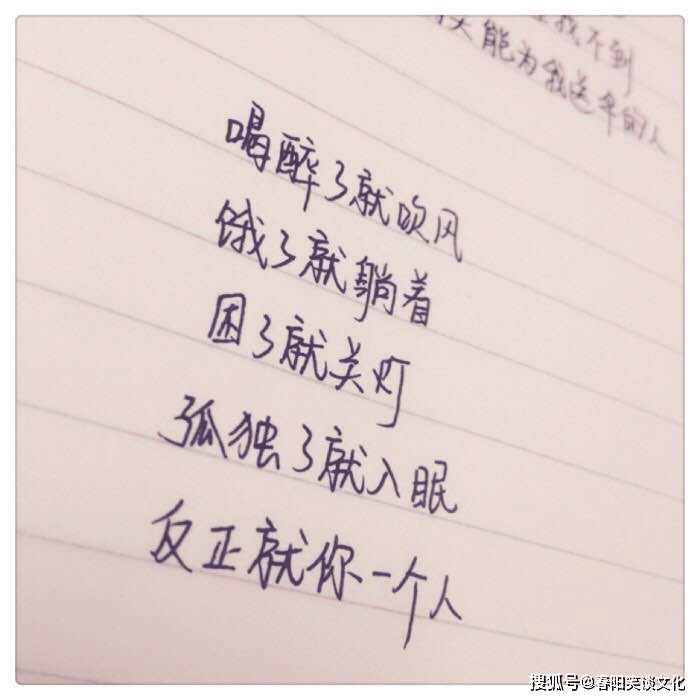 找不到
能为我送伞的人
喝醉了就吹风
饿了就躺着
困了就关灯
孤独了就入眠
反正就你一个人
搜狐号@春阳笑谈文化